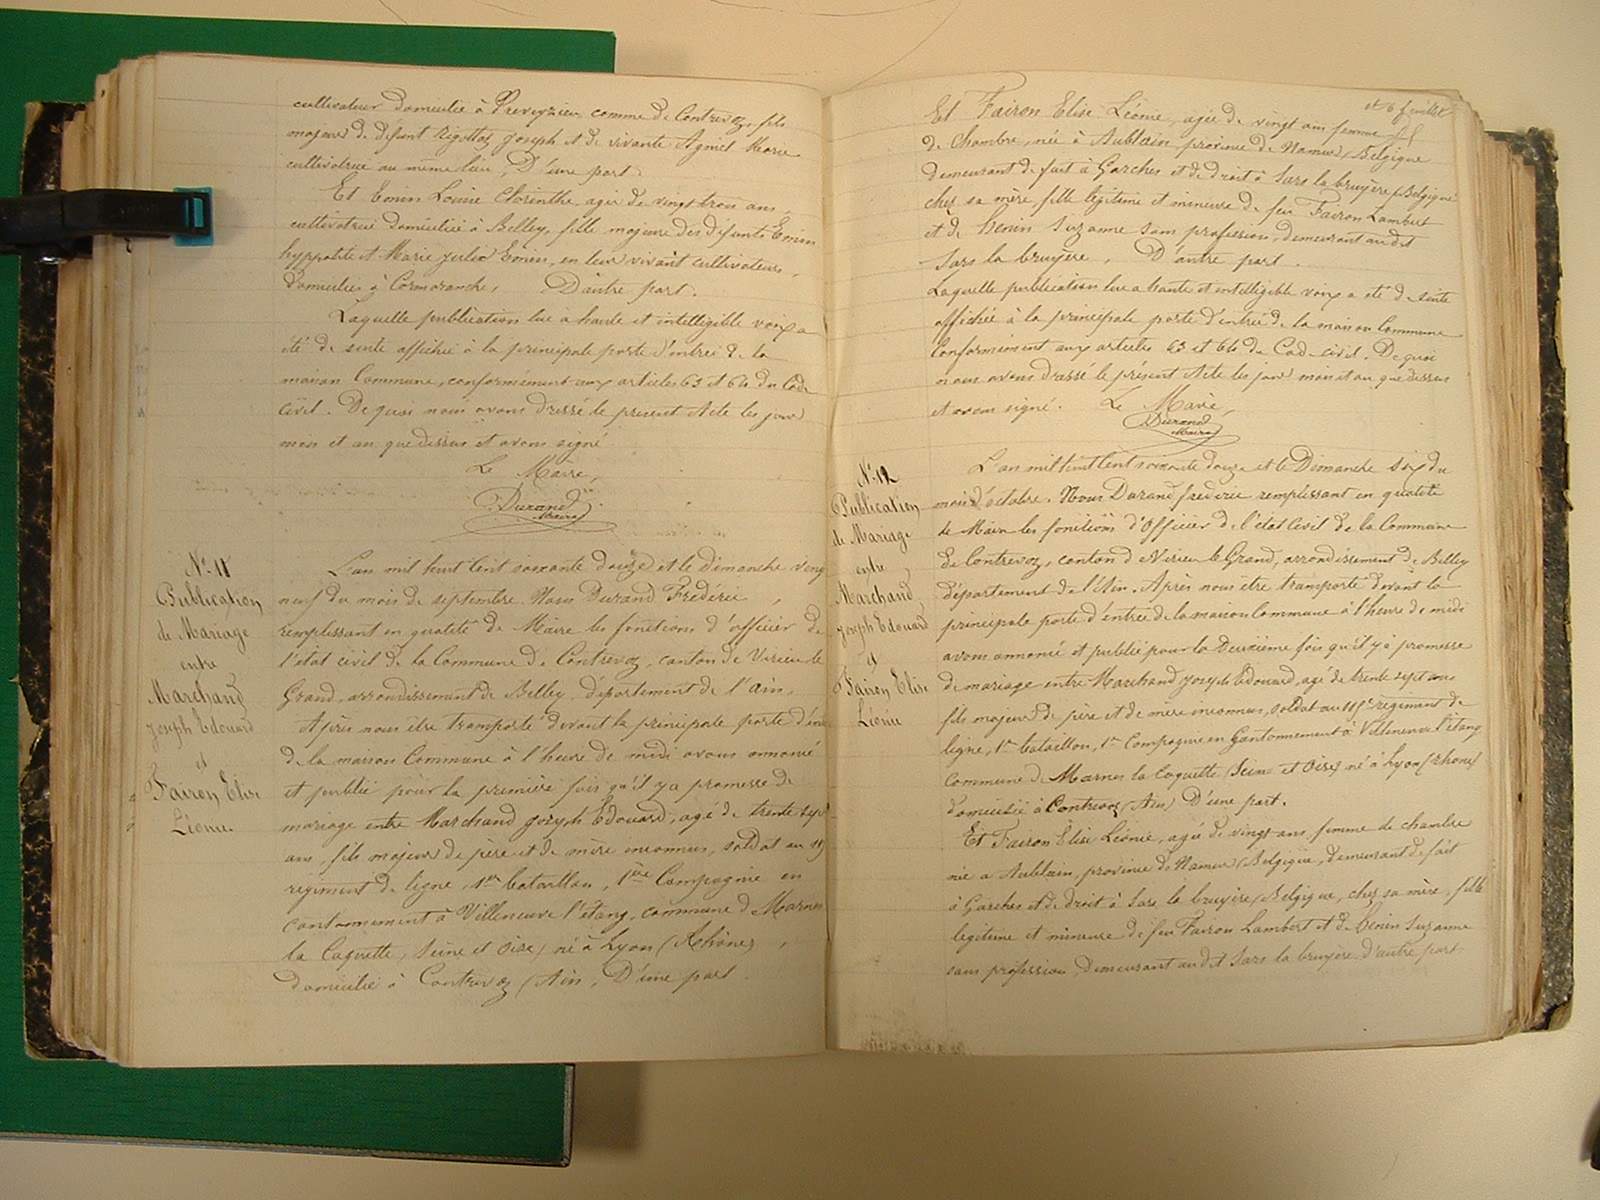 cultivateur domicilié à Preveyzieu commune de Contrevoz, fils
majeur de défunt Rigolloz Joseph et de vivante Agniel Marie
cultivatrice au même lieu, D'une part.
Et Emin Louise Clorinthe, agée de vingt trois ans,
cultivatrice domiciliée à Belley, fille majeure des défunts Emin
hyppolite et Marie Julie Emin, en leur vivant cultivateurs,
domiciliés à Cormoranche, D'autre part.
Laquelle publication lue à haute et intelligible voix a
été de suite affichée à la principale porte d'entrée de la
maison Commune, conformément aux articles 63 et 64 du Code
civil. De quoi nous avons dressé le présent Acte les jour
mois et an que dessus et avons signé
Le Maire,
Durand
Maire
N° 11
Publication
de Mariage
entre
Marchand
Joseph Edouard
et
Fairon Elise
Léonie.
L'an mil huit cent soixante douze et le dimanche vingt
neuf du mois de septembre. Nous Durand Frédéric,
remplissant en qualité de Maire les fonctions d'officier de
l'état civil de la Commune de Contrevoz, canton de Virieu le
Grand, arrondissement de Belley, département de l'Ain,
Après nous être transporté devant la principale porte d'entrée
de la maison Commune à l'heure de midi avons annoncé
et publié pour la première fois qu'il y a promesse de
mariage entre Marchand Joseph Edouard, agé de trente sept
ans, fils majeur de père et de mère inconnus, soldat au
régiment de ligne, 1er bataillon, 1ère Compagnie en
cantonnement à Villeneuve l'étang, commune de Marnes
la Coquette, (Seine et Oise) né à Lyon (Rhône),
domicilié à Contrevoz (Ain), D'une part.
et 6 feuillet
Et Fairon Elise Léonie, agée de vingt ans femme
de Chambre, née à Aublain, province de Namur, (Belgique
demeurant de fait à Garches et de droit à Sars la bruyère (Belgique
chez sa mère fille légitime et mineure de feu Fairon Lambert
et de henin Suzanne sans profession, demeurant audit
Sars la bruyère, D'autre part.
Laquelle publication lue a haute et intelligible voix a été de suite
affichée à la principale porte d'entrée de la maison Commune
Conformément aux articles 63 et 64 du Code civil. De quoi
nous avons dressé le présent Acte les jour mois et an que dessus
et avons signé. Le Maire,
Durand
Maire
N° 12
Publication
de Mariage
entre
Marchand
Joseph Edouard
et
Fairon Elise
Léonie
L'an mil huit cent soixante douze et le Dimanche six du
mois d'octobre. Nous Durand frédéric remplissant en qualité
de Maire les fonctions d'Officier de l'état Civil de la Commune
de Contrevoz, canton de Virieu le Grand, arrondissement de Belley
département de l'Ain. Après nous être transporté devant la
principale porte d'entrée de la maison Commune à l'heure de midi
avons annoncé et publié pour la Deuxième fois qu'il y a promesse
de mariage entre Marchand Joseph Edouard, agé de trente sept ans
fils majeur de père et de mère inconnus, soldat au régiment de
ligne, 1er bataillon, 1re Compagnie en Cantonnement à Villeneuve l'étang
Commune de Marnes la Coquette (Seine et Oise) né à Lyon (Rhône)
domicilié à Contrevoz (Ain) D'une part.
Et Fairon Elise Léonie, agée de vingt ans, femme de chambre
née a Aublain, province de Namur (Belgique, demeurant de fait
à Garches et de droit à Sars la bruyère (Belgique, chez sa mère, fille
légitime et mineure de feu Fairon Lambert et de henin Suzanne
sans profession, demeurant audit Sars la bruyère, d'autre part